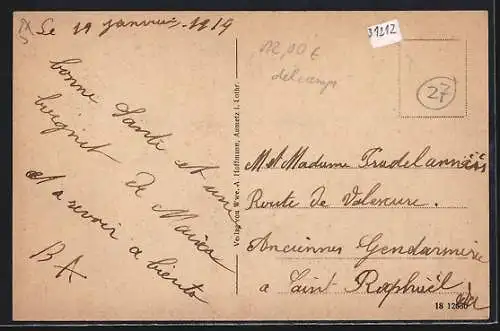 Le 19 janvier 1919
bonne Santé et une
de
et a revoir a biento
B A
Verlag von Wwe. A. Hoffmann, Aumetz i. Lothr.
12,00 €
delcamp
31212
27
M et Madame Pradel
Route de Valescure
Anciennes Gendarmerie
a Saint Raphaël
18 12630